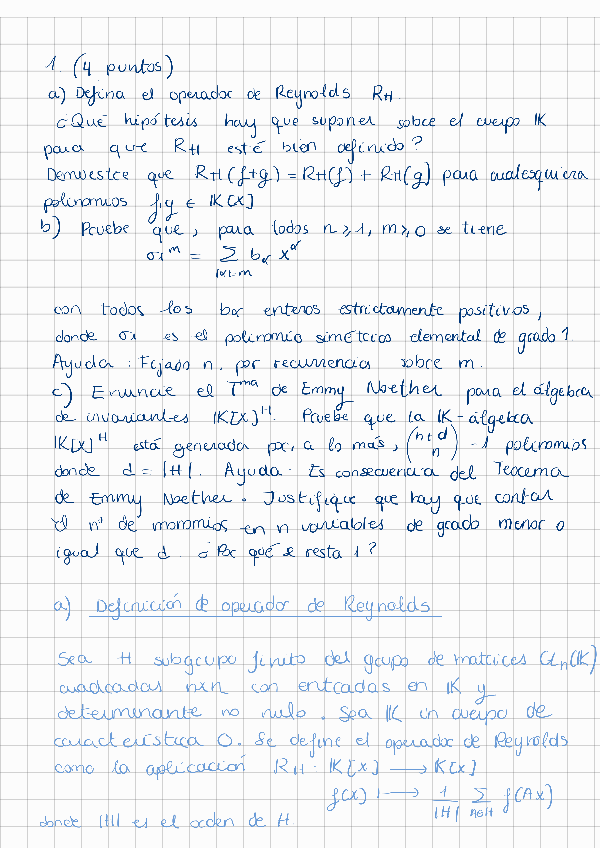 1. (4 puntos)
a) Defina el operador de Reynolds R_H.
¿Qué hipótesis hay que suponer sobre el cuerpo 𝕂
para que R_H esté bien definido?
Demuestre que R_H(f+g) = R_H(f) + R_H(g) para cualesquiera
polinomios f,g ∈ 𝕂[X]
b) Pruebe que, para todos n ≥ 1, m ≥ 0 se tiene
σ₁^m = Σ_{|α|=m} b_α X^α
con todos los b_α enteros estrictamente positivos,
donde σ₁ es el polinomio simétrico elemental de grado 1
Ayuda: Fijado n, por recurrencia sobre m.
c) Enuncie el Tma de Emmy Noether para el álgebra
de invariantes 𝕂[X]^H. Pruebe que la 𝕂-álgebra
𝕂[X]^H está generada por, a lo más, (n+d n) - 1 polinomios
donde d = |H|. Ayuda: Es consecuencia del Teorema
de Emmy Noether. Justifique que hay que contar
el nº de monomios en n variables de grado menor o
igual que d. ¿Por qué se resta 1?
a) Definición de operador de Reynolds
Sea H subgrupo finito del grupo de matrices GL_n(𝕂)
cuadradas nxn con entradas en 𝕂 y
determinante no nulo. Sea 𝕂 un cuerpo de
característica 0. Se define el operador de Reynolds
como la aplicación R_H : 𝕂[X] ⟶ 𝕂[X]
f(X) ⟼ 1/|H| Σ_{A∈H} f(AX)
donde |H| es el orden de H